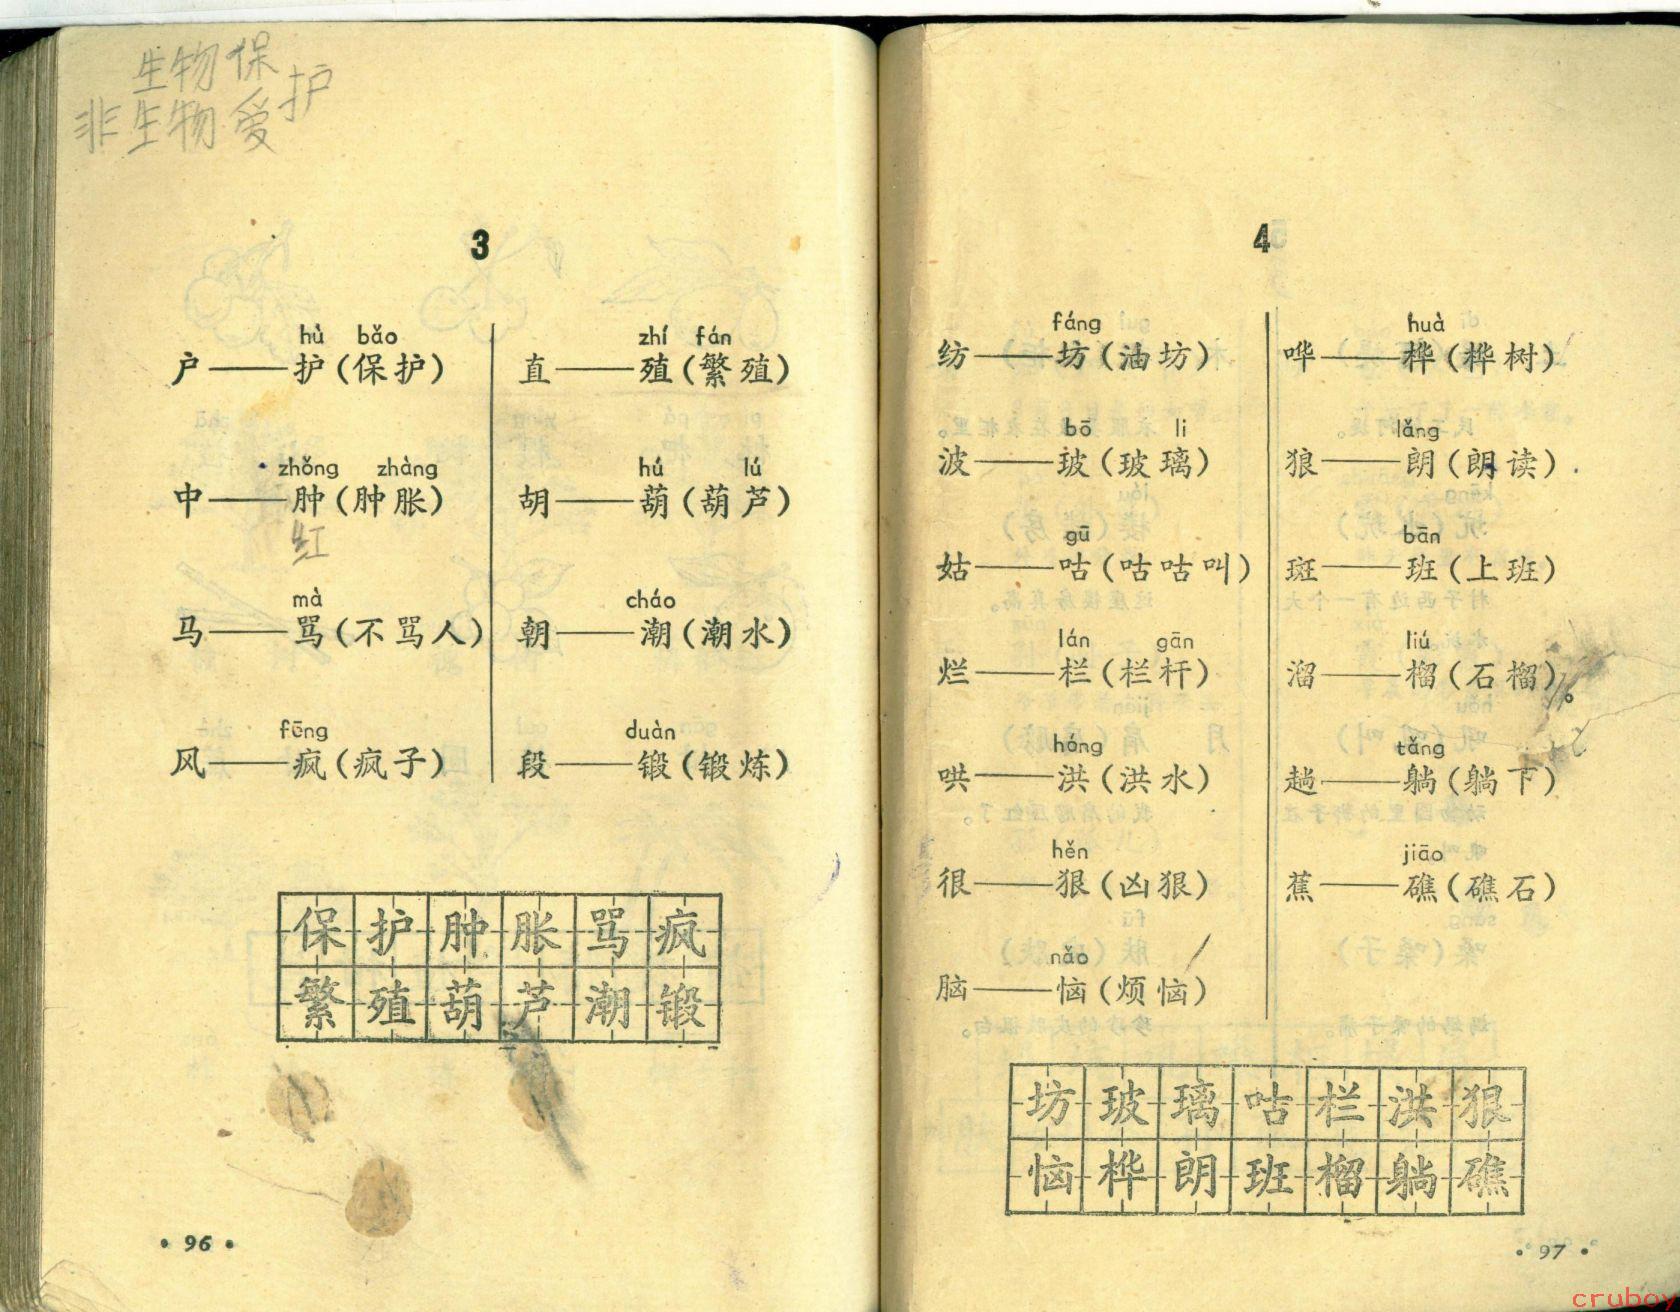 生物保
护
非生物爱
3
hù bǎo
户——护(保护)
zhǒng zhàng
中——肿(肿胀)
红
mà
马——骂(不骂人)
fēng
风——疯(疯子)
zhí fán
直——殖(繁殖)
hú lú
胡——葫(葫芦)
cháo
朝——潮(潮水)
duàn
段——锻(锻炼)
保护肿胀骂疯
繁殖葫芦潮锻
• 96 •
4
fáng
纺——坊(油坊)
bō li
波——玻(玻璃)
gū
姑——咕(咕咕叫)
lán gān
烂——栏(栏杆)
hóng
哄——洪(洪水)
hěn
很——狠(凶狠)
nǎo
脑——恼(烦恼)
huà
哗——桦(桦树)
lǎng
狼——朗(朗读)
bān
斑——班(上班)
liú
溜——榴(石榴)
tǎng
趟——躺(躺下)
jiāo
蕉——礁(礁石)
坊玻璃咕栏洪狠
恼桦朗班榴躺礁
• 97 •
cruboy